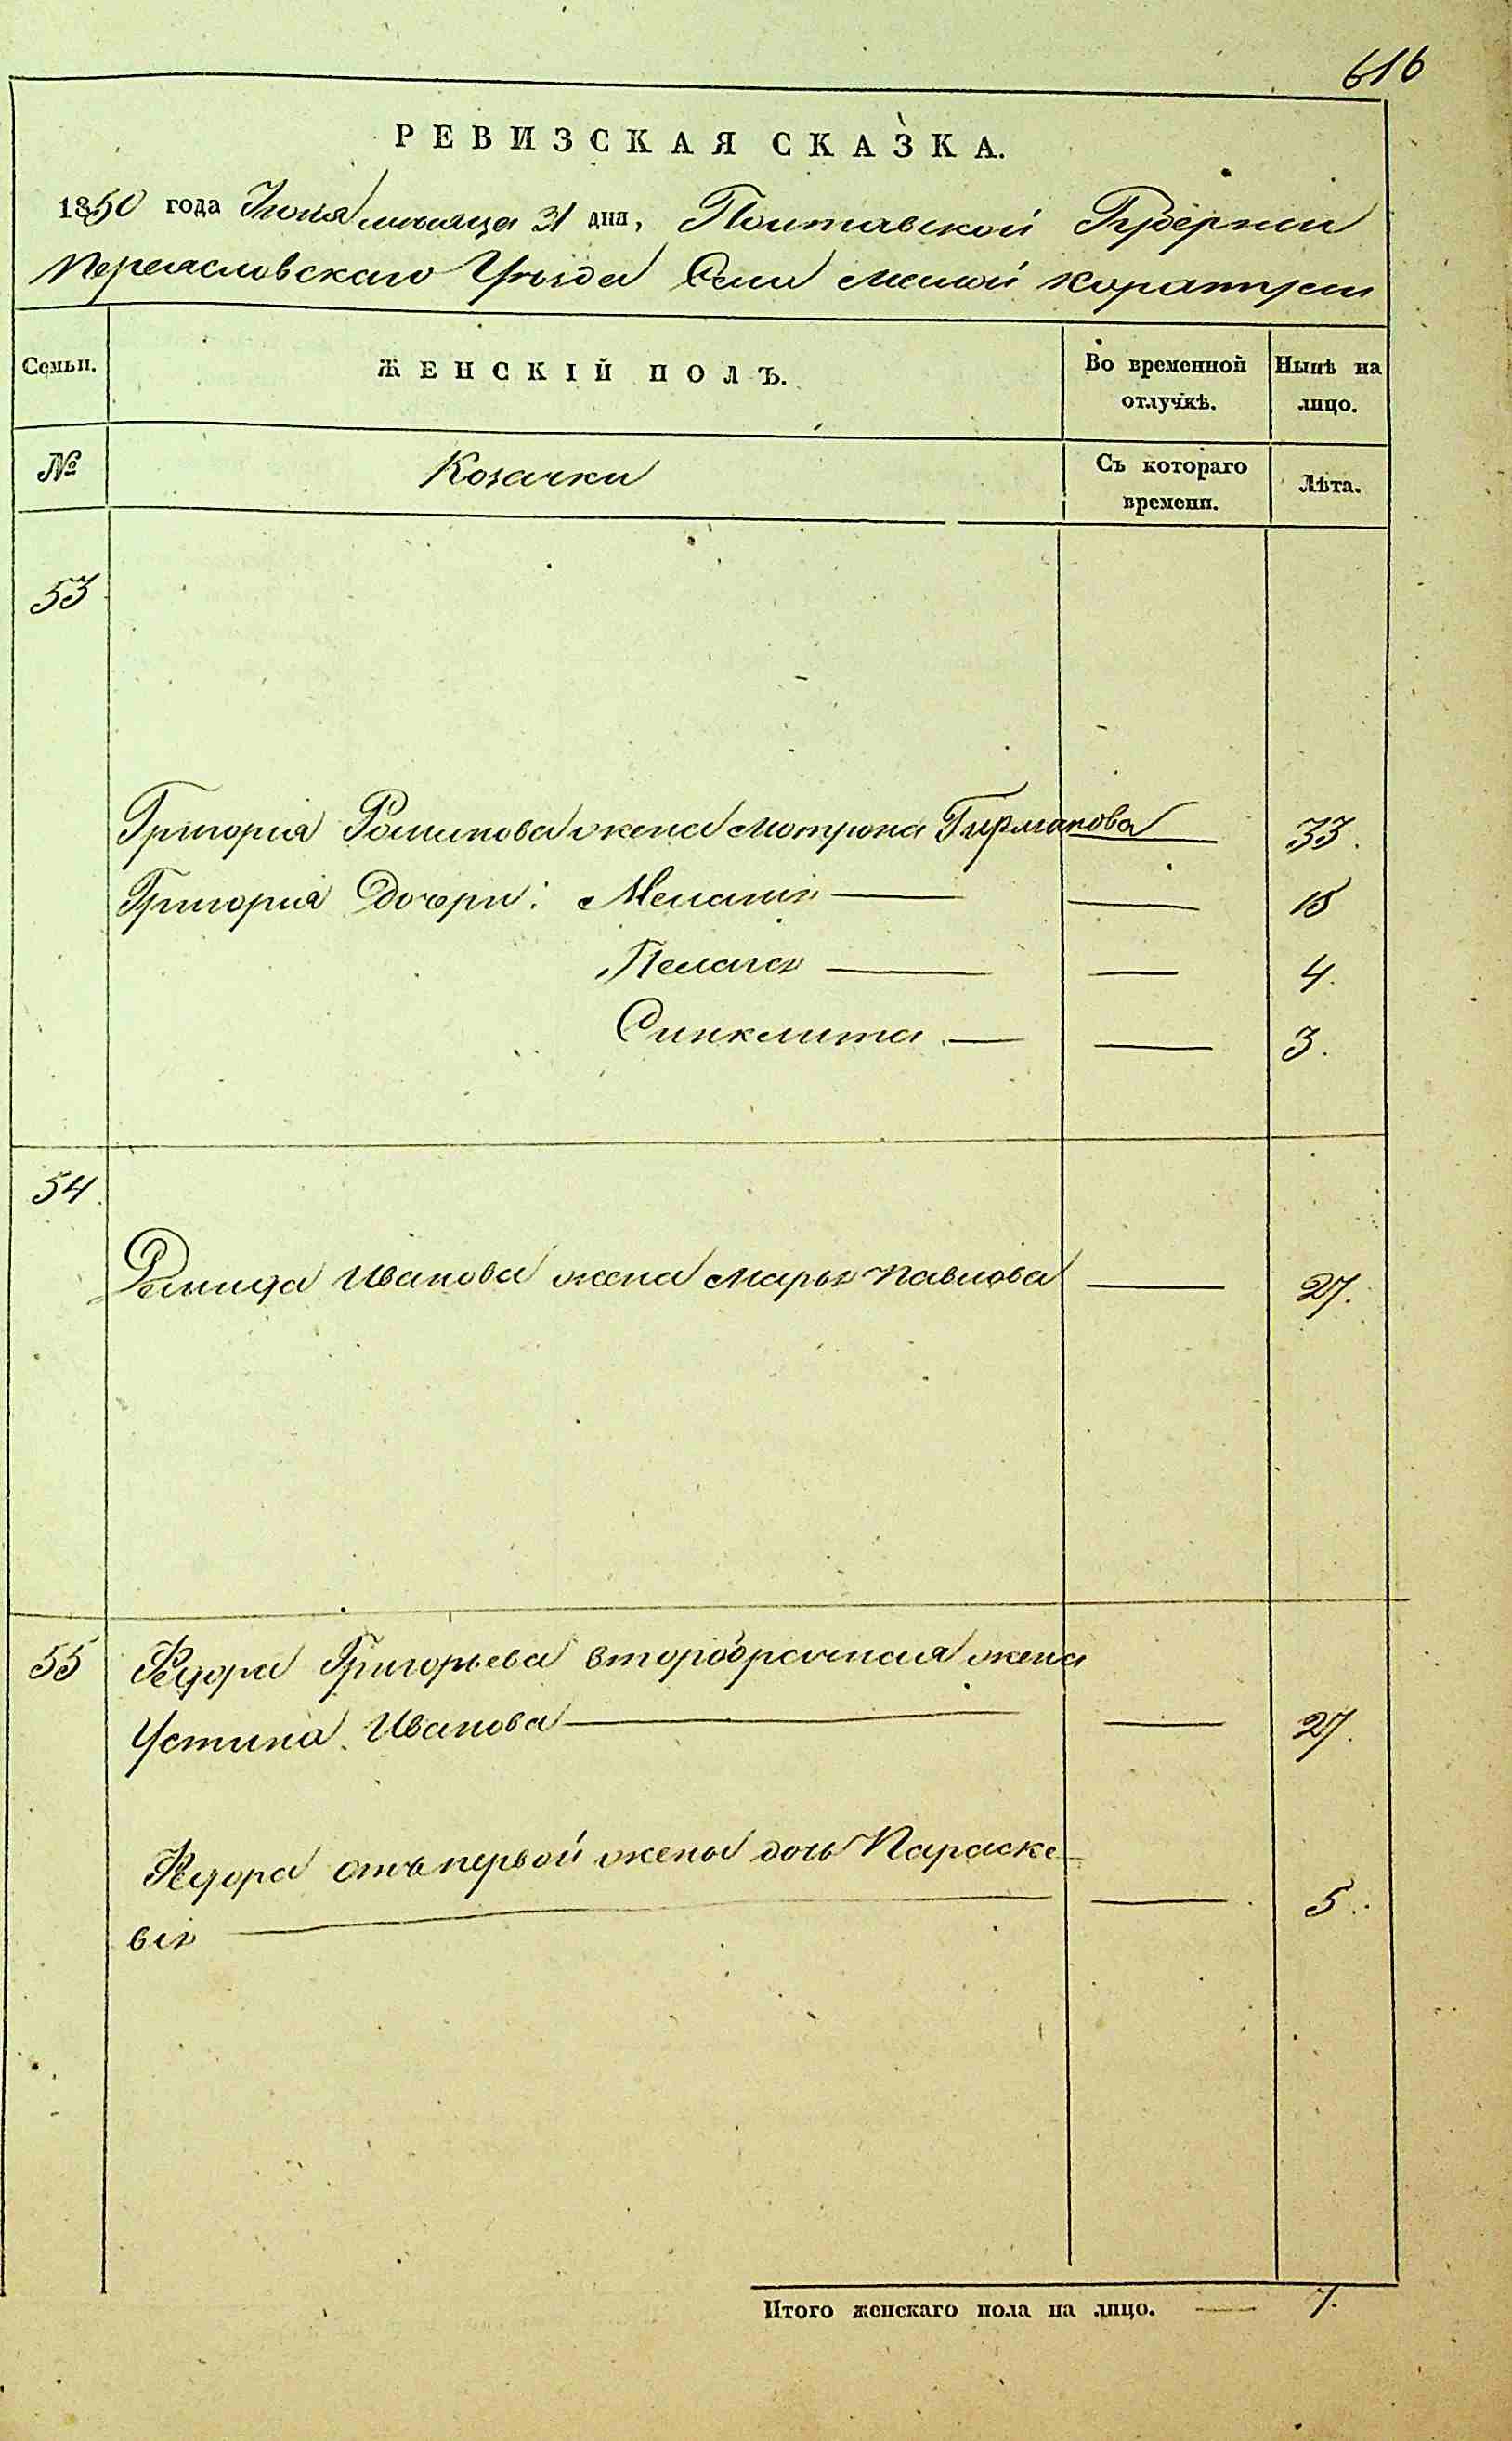 616
РЕВИЗСКАЯ СКАЗКА.
1850 года Июля мѣсяца 31 дня, Полтавской Губерніи
Переясловскаго Уѣзда Села Малой Каратули
Семьи. ЖЕНСКІЙ ПОЛЪ. Во временной отлучкѣ. Нынѣ на лицо.
№ Козачки Съ котораго времени. Лѣта.
53
Григорія Романова жена Мотрона Гирманова — 33.
Григорія Дочери: Меланія — — 15
Пелагея — — 4.
Синклита — — 3.
54
Ивана жена Марья Павлова — 27.
55 Федора Григорьева второбрачная жена
Устина Иванова — — 27.
Федора отъ первой жены дочь Параске-
вія — — 5.
Итого женскаго пола на лицо. — 7.